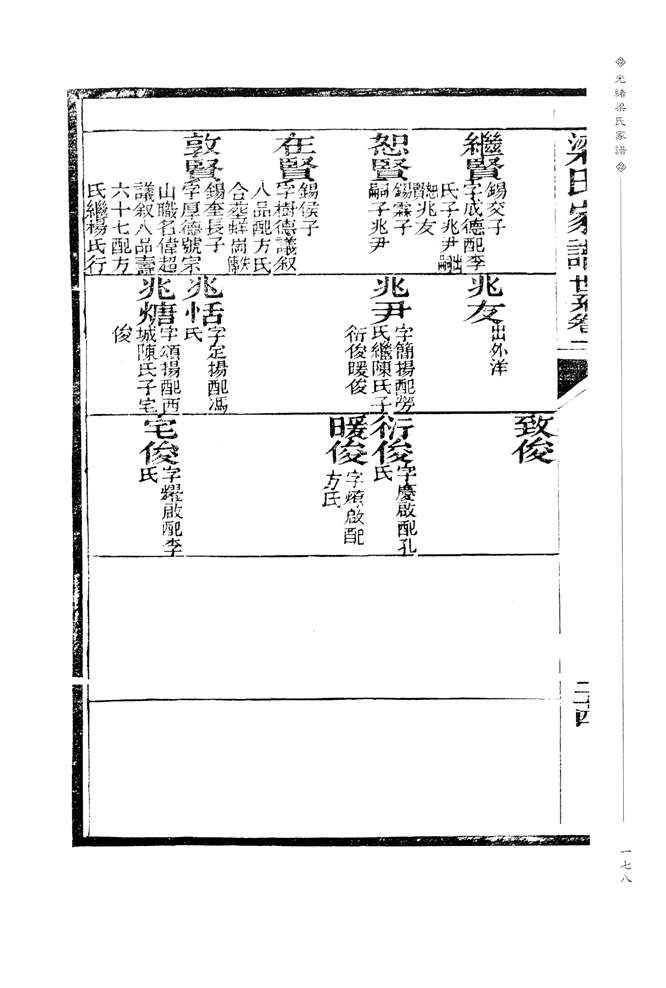 光緒梁氏家譜
梁氏家譜世系卷一
二十四
一七八
繼賢
錫交子
字成德配李
氏子兆尹出嗣
恕賢兆友
恕賢
錫霖子
嗣子兆尹
在賢
錫侯子
字樹德議叙
八品配方氏
合塟蚌崗
敦賢
錫奎長子
字厚德號宗
山職名偉超
議叙八品壽
六十七配方
氏繼楊氏行
兆友
出外洋
兆尹
字簡揚配勞
氏繼陳氏子
衍俊暖俊
兆恬
字定揚配馮
氏
兆煻
字頌揚配西
城陳氏子宅
俊
致俊
衍俊
字慶啟配孔
氏
暖俊
字煩啟配
方氏
宅俊
字耀啟配李
氏